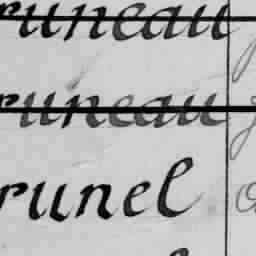 runeau
runeau
runel